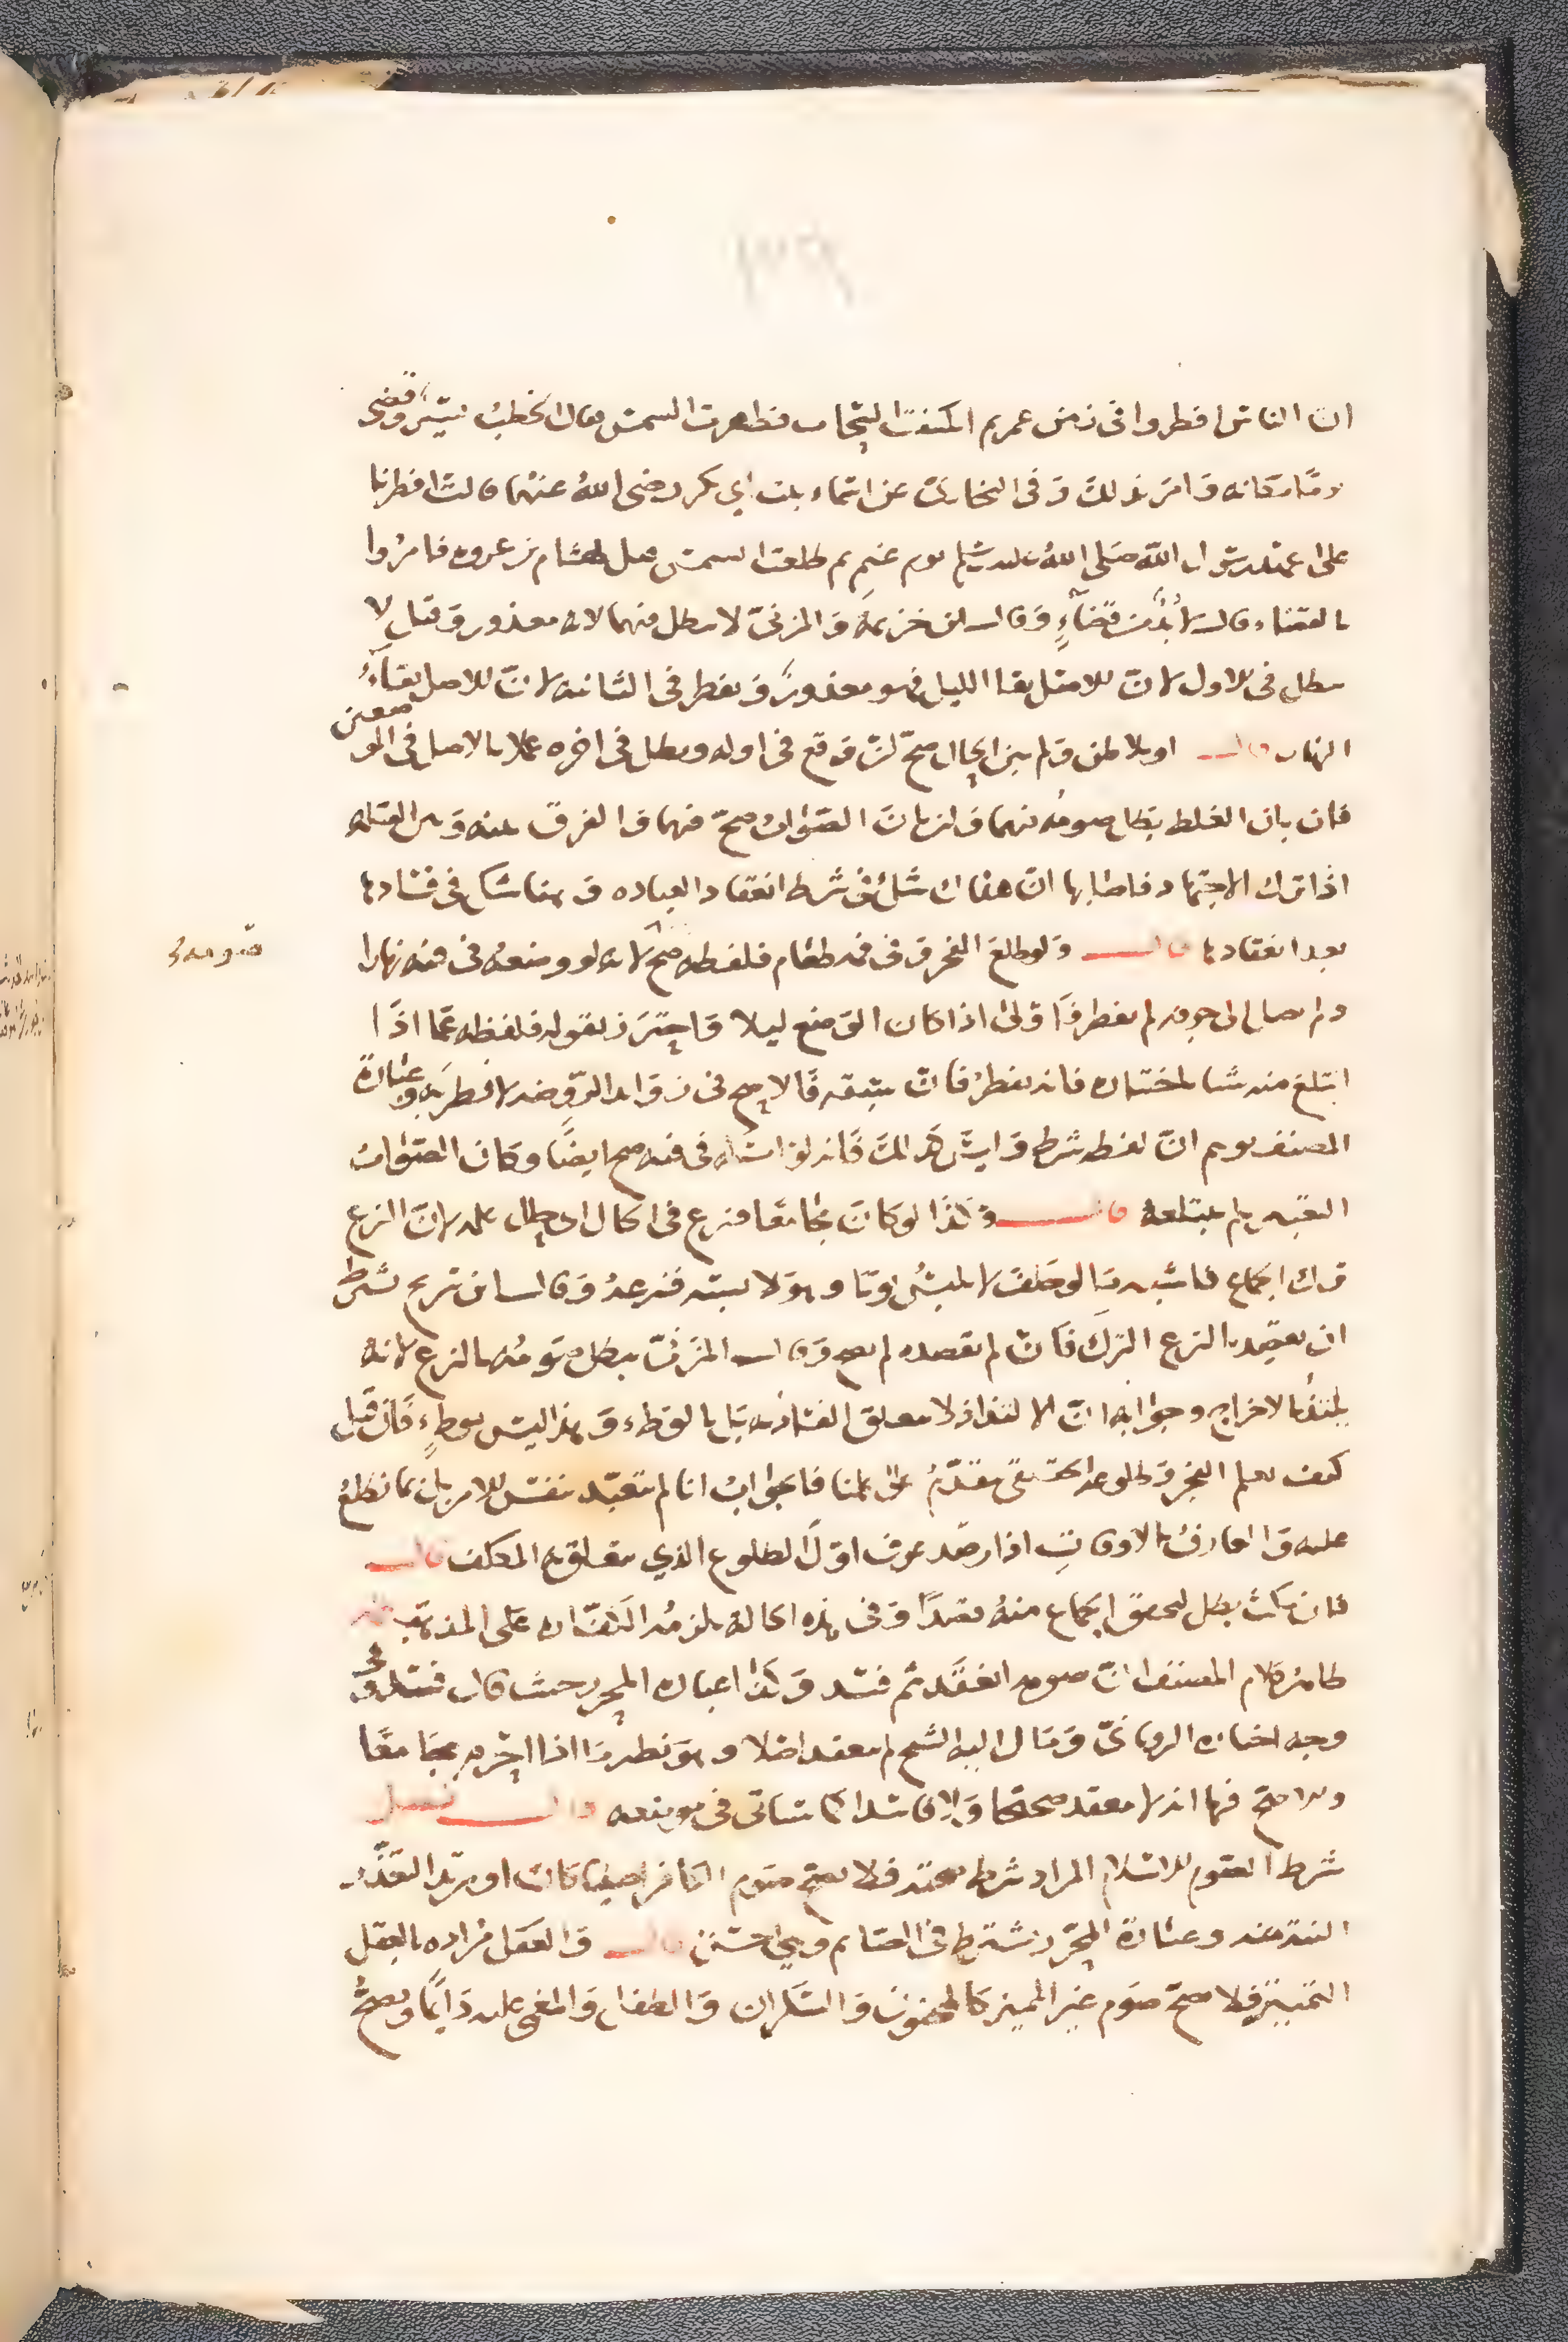 ان الناس افطروا في زمن عمر ثم انكشف السحاب فظهرت الشمس فقال الخطب يسير وقضى
يوما مكانه وامر بذلك وفي البخاري عن اسماء بنت ابي بكر رضي الله عنهما قالت افطرنا
على عهد رسول الله صلى الله عليه وسلم يوم غيم ثم طلعت الشمس قيل لهشام بن عروة فامروا
بالقضاء قال لا بد من قضاء وقال ابن خزيمة والمزني لا يبطل فيهما لانه معذور وقيل لا
يبطل في الاول لان الاصل بقا الليل فهو معذور ويفطر في الثانية لان الاصل بقاء
النهار قال او بلا ظن ولم يبن الحال صح ان وقع في اوله وبطل في اخره عملا بالاصل في الموضعين
فان بان الغلط بطل صومه فيهما وان بان الصواب صح فيهما والفرق بينه وبين القبلة
اذا ترك الاجتهاد فاصابها ان هناك شك في شرط انعقاد العبادة وهنا شك في فسادها
بعد انعقادها قال ولو طلع الفجر وفي فمه طعام فلفظه صح لانه لو وضعه في فمه نهارا
صومه
ولم يصل الى جوفه لم يفطر فاولى اذا كان الوضع ليلا واحترز بقوله فلفظه عما اذا
ابتلع منه شيا باختياره فانه يفطر فان سبقه فالاصح في زوايد الروضة لا فطر به وعبارة
المصنف توهم ان لفظه شرط وليس كذلك فانه لو امسكه في فيه صح ايضا وكان الصواب
التعبير بلم يبتلعه قال وكذا لو كان مجامعا فنزع في الحال اي بطل عليه لان النزع
ترك الجماع فاشبه ما لو حلف لا يلبس ثوبا وهو لابسه فنزعه وقال ابن سريج بشرط
ان يقصد بالنزع الترك فان لم يقصده لم يصح وقال المزني يبطل صومه بالنزع لانه
يلتذ بالاخراج وجوابه ان الالتذاذ لا يتعلق الفساد به بل بالوطء وهذا ليس بوطء فان قيل
كيف يعلم الفجر وطلوعه الحقيقي متقدم على علمنا فالجواب انا لم نتعبد بنفس الامر بل بما نطلع
عليه والعارف بالاوقات اذا رصد عرف اول الطلوع الذي يتعلق به المكلف قال
فان مكث بطل لتحقق الجماع منه مقصدا وفي هذه الحالة يلزمه الكفارة على المذهب
ظاهر كلام المصنف ان صومه انعقد ثم فسد وكذا عبارة المحرر حيث قال فسد وفي
وجه اختاره الروياني ومال اليه الشيخ لم ينعقد اصلا وهو نظير ما اذا احرم مجامعا
والاصح فيها انه لا ينعقد صحيحا ولا فاسدا كما سياتي في موضعه قال فصل
شرط الصوم الاسلام المراد شرط صحته فلا يصح صوم الكافر اصليا كان او مرتدا لتعذر
النية منه وعبارة المحرر يشترط في الصايم وهي احسن قال والعقل مراده بالعقل
التمييز فلا يصح صوم غير المميز كالمجنون والسكران والطفل والمغمى عليه دايما ويصح